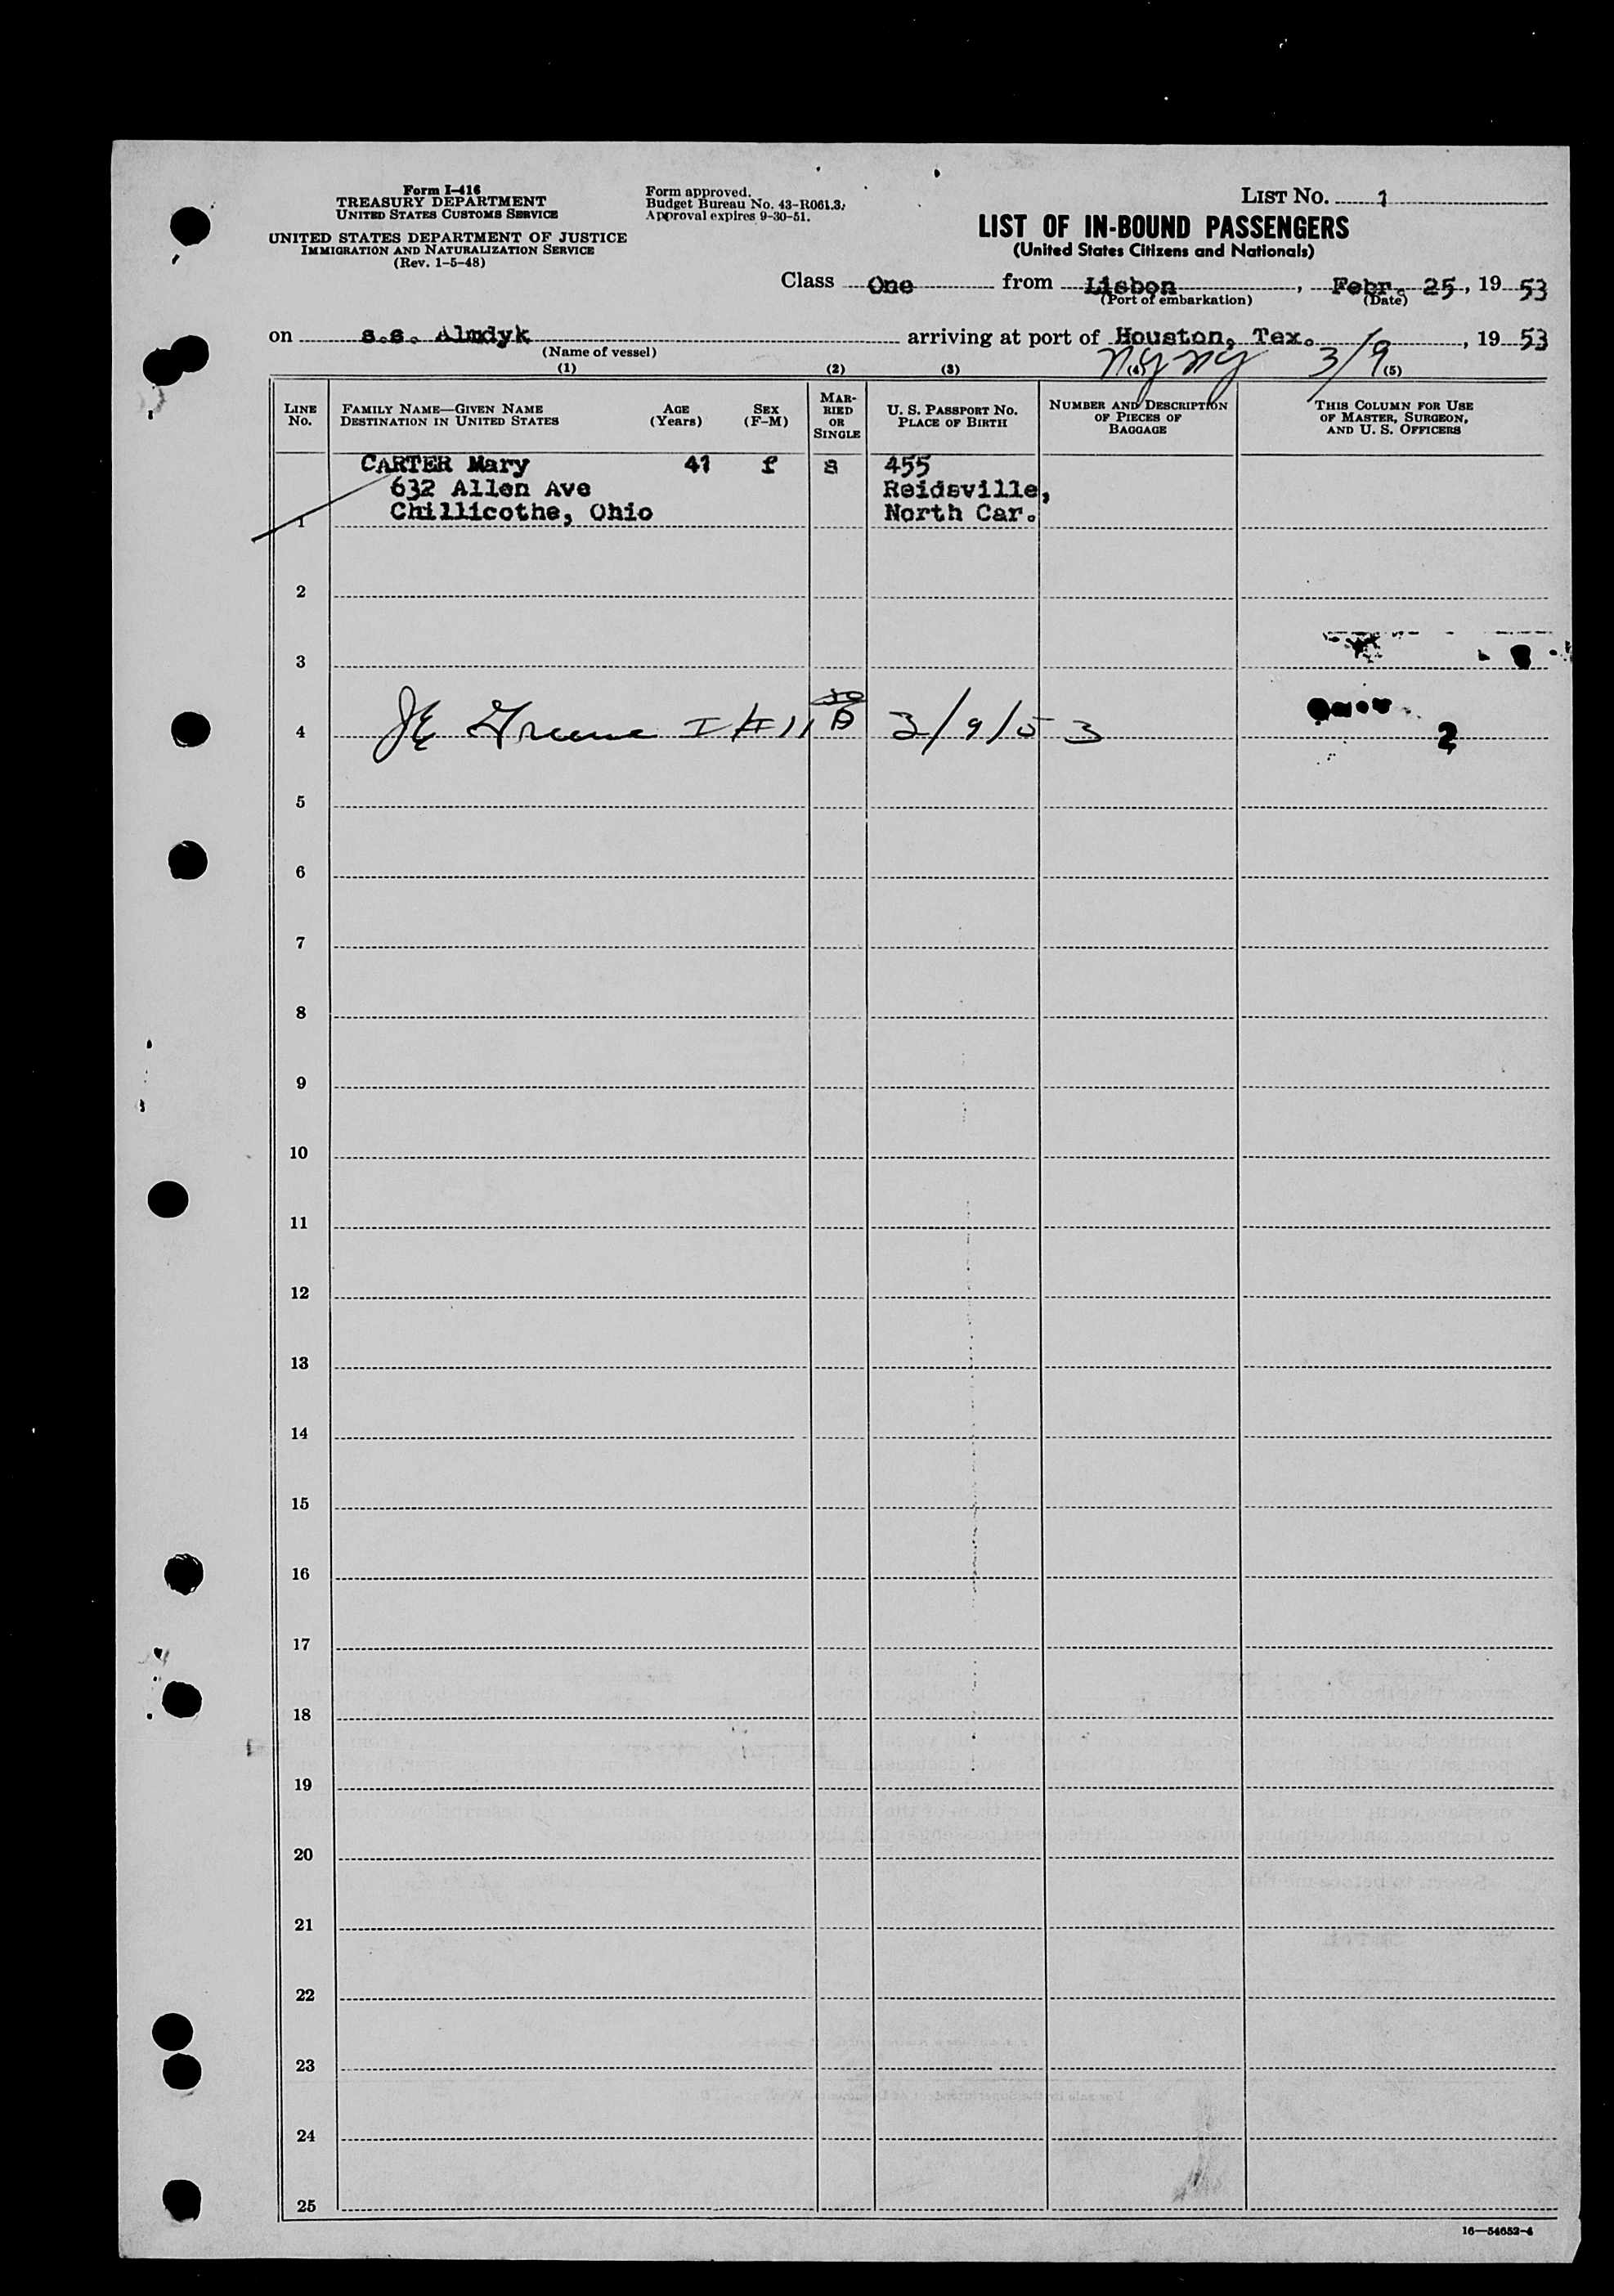 Form I-416
TREASURY DEPARTMENT
UNITED STATES CUSTOMS SERVICE
UNITED STATES DEPARTMENT OF JUSTICE
IMMIGRATION AND NATURALIZATION SERVICE
(Rev. 1-5-48)
Form approved.
Budget Bureau No. 43-R061.3.
Approval expires 9-30-51.
LIST NO. 1
LIST OF IN-BOUND PASSENGERS
(United States Citizens and Nationals)
Class One from Lisbon, Febr. 25, 19 53
(Port of embarkation) (Date)
on s.s. Almdyk arriving at port of Houston, Tex., 19 53
(Name of vessel)
NY NY 3/9
(1) (2) (3) (4) (5)
LINE NO.
FAMILY NAME—GIVEN NAME
DESTINATION IN UNITED STATES
AGE (Years)
SEX (F-M)
MARRIED OR SINGLE
U. S. PASSPORT NO.
PLACE OF BIRTH
NUMBER AND DESCRIPTION OF PIECES OF BAGGAGE
THIS COLUMN FOR USE OF MASTER, SURGEON, AND U. S. OFFICERS
CARTER Mary 41 f s 455
632 Allen Ave Reidsville,
1 Chillicothe, Ohio North Car.
2
3
4 JE Greene 3/9/53 2
5
6
7
8
9
10
11
12
13
14
15
16
17
18
19
20
21
22
23
24
25
16—54652-4